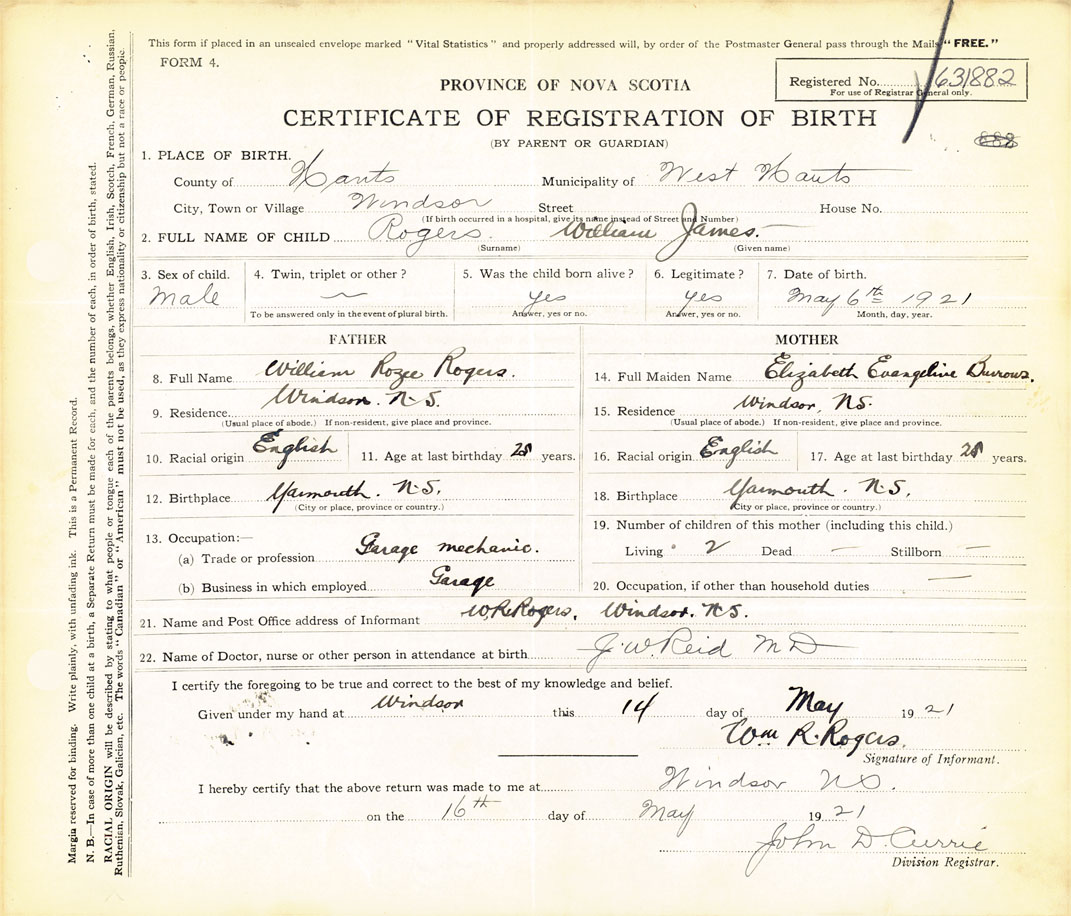 This form if placed in an unsealed envelope marked "Vital Statistics" and properly addressed will, by order of the Postmaster General pass through the Mails "FREE."
FORM 4.
Registered No. 631882
For use of Registrar General only.
PROVINCE OF NOVA SCOTIA
CERTIFICATE OF REGISTRATION OF BIRTH
(BY PARENT OR GUARDIAN)
1. PLACE OF BIRTH.
County of Hants Municipality of West Hants
City, Town or Village Windsor Street House No.
(If birth occurred in a hospital, give its name instead of Street and Number)
2. FULL NAME OF CHILD Rogers. William James.
(Surname) (Given name)
3. Sex of child. 4. Twin, triplet or other? 5. Was the child born alive? 6. Legitimate? 7. Date of birth.
Male — yes yes May 6th 1921
To be answered only in the event of plural birth. Answer, yes or no. Answer, yes or no. Month, day, year.
FATHER MOTHER
8. Full Name William Rozee Rogers. 14. Full Maiden Name Elizabeth Evangeline Burrows.
9. Residence Windsor. N.S. 15. Residence Windsor, NS.
(Usual place of abode.) If non-resident, give place and province. (Usual place of abode.) If non-resident, give place and province.
10. Racial origin English 11. Age at last birthday years. 16. Racial origin English 17. Age at last birthday years.
12. Birthplace Yarmouth. N.S. 18. Birthplace Yarmouth. N.S.
(City or place, province or country.) (City or place, province or country.)
13. Occupation:— 19. Number of children of this mother (including this child.)
(a) Trade or profession Garage mechanic. Living 2 Dead — Stillborn —
(b) Business in which employed Garage 20. Occupation, if other than household duties —
21. Name and Post Office address of Informant W.R. Rogers, Windsor. N.S.
22. Name of Doctor, nurse or other person in attendance at birth J.W. Reid M D
I certify the foregoing to be true and correct to the best of my knowledge and belief.
Given under my hand at Windsor this 14 day of May 1921
Wm R. Rogers.
Signature of Informant.
I hereby certify that the above return was made to me at Windsor NS.
on the 16th day of May 1921
John D. Currie
Division Registrar.
Margin reserved for binding. Write plainly, with unfading ink. This is a Permanent Record.
N. B.—In case of more than one child at a birth, a Separate Return must be made for each, and the number of each, in order of birth, stated.
RACIAL ORIGIN will be described by stating to what people or tongue each of the parents belongs, whether English, Irish, Scotch, French, German, Russian,
Ruthenian, Slovak, Galician, etc. The words "Canadian" or "American" must not be used, as they express nationality or citizenship but not a race or people.